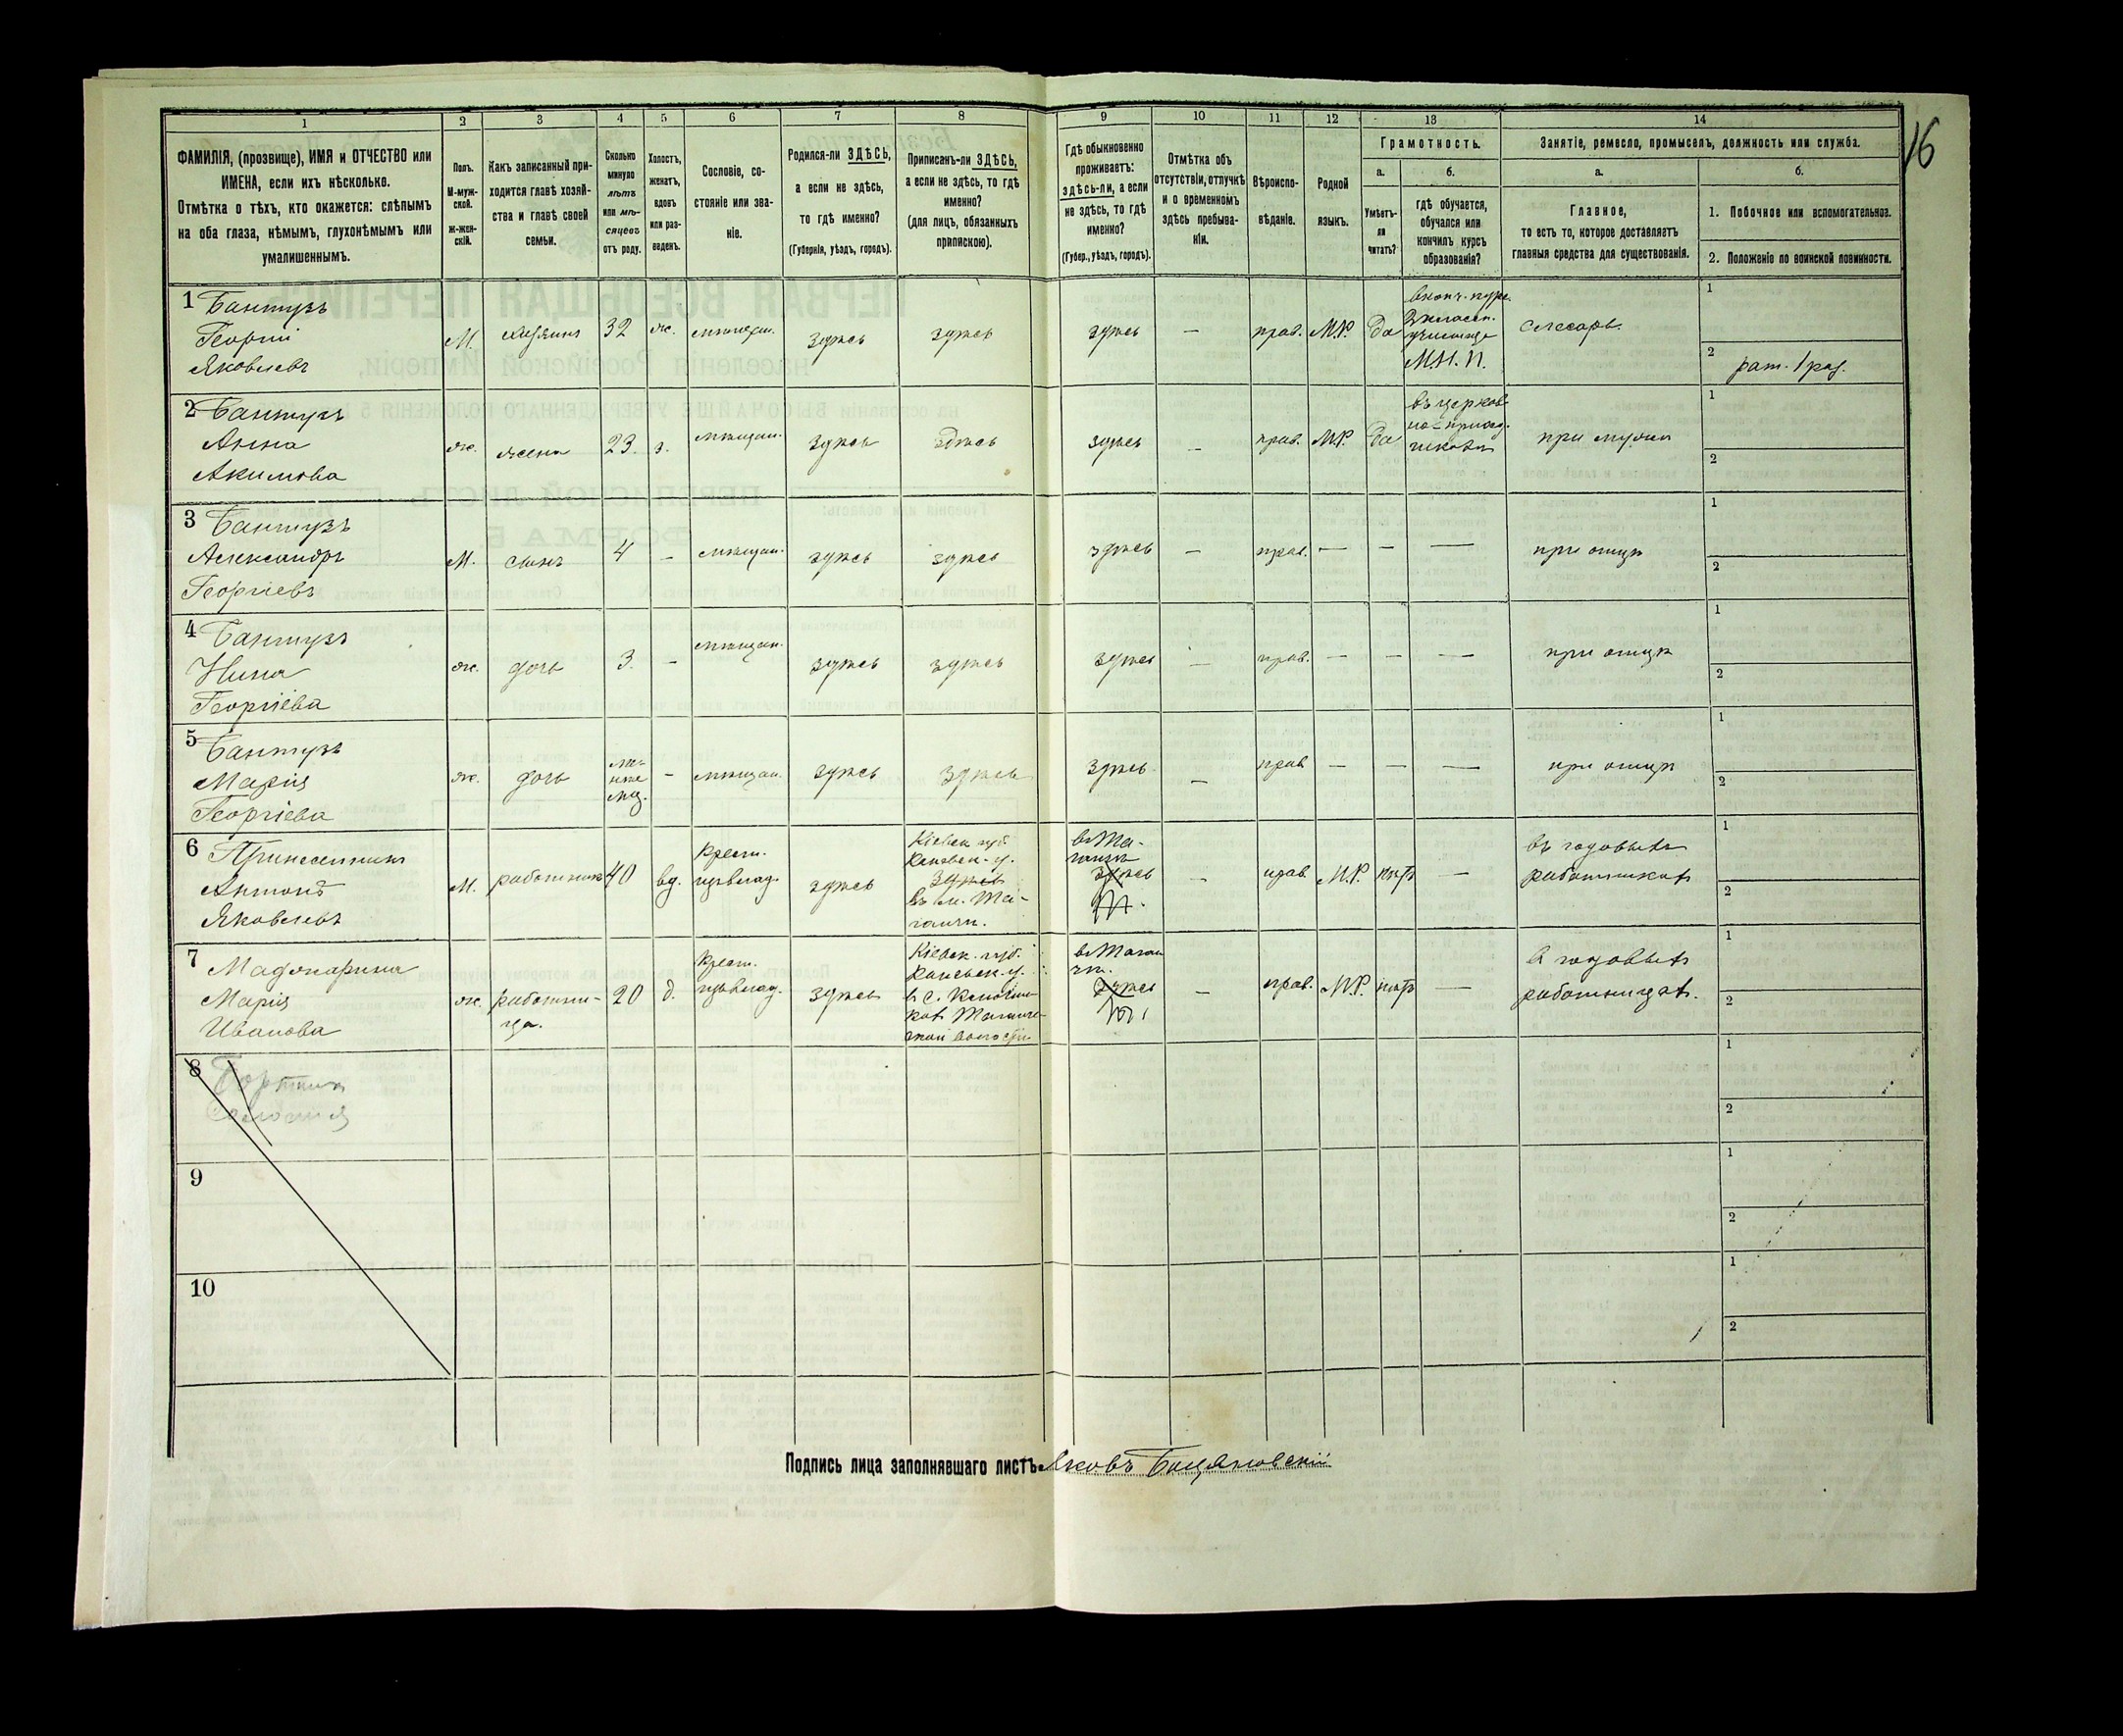 16
1 2 3 4 5 6 7 8 9 10 11 12 13 14
ФАМИЛІЯ, (прозвище), ИМЯ и ОТЧЕСТВО или
ИМЕНА, если ихъ нѣсколько.
Отмѣтка о тѣхъ, кто окажется: слѣпымъ
на оба глаза, нѣмымъ, глухонѣмымъ или
умалишеннымъ.
Полъ.
М-муж-
ской.
ж-жен-
скій.
Какъ записанный при-
ходится главѣ хозяй-
ства и главѣ своей
семьи.
Сколько
минуло
лѣтъ
или мѣ-
сяцевъ
отъ роду.
Холостъ,
женатъ,
вдовъ
или раз-
веденъ.
Сословіе, со-
стояніе или зва-
ніе.
Родился-ли ЗДѢСЬ,
а если не здѣсь,
то гдѣ именно?
(Губернія, уѣздъ, городъ).
Приписанъ-ли ЗДѢСЬ,
а если не здѣсь, то гдѣ
именно?
(для лицъ, обязанныхъ
припискою).
Гдѣ обыкновенно
проживаетъ:
здѣсь-ли, а если
не здѣсь, то гдѣ
именно?
(Губер., уѣздъ, городъ).
Отмѣтка объ
отсутствіи, отлучкѣ
и о временномъ
здѣсь пребыва-
ніи.
Вѣроиспо-
вѣданіе.
Родной
языкъ.
Грамотность.
а.
Умѣетъ-
ли
читать?
б.
гдѣ обучается,
обучался или
кончилъ курсъ
образованія?
Занятіе, ремесло, промыселъ, должность или служба.
а.
Главное,
то есть то, которое доставляетъ
главныя средства для существованія.
б.
1. Побочное или вспомогательное.
2. Положеніе по воинской повинности.
1 Бантузъ
Георгій
Яковлевъ
М.
хозяинъ
32
ж.
мѣщан.
здѣсь
здѣсь
здѣсь
—
прав.
М.Р.
да
училище
М.Н.П.
слесарь.
1
2
рат. 1 раз.
2 Бантузъ
Анна
Акимова
ж.
жена
23.
з.
мѣщан.
здѣсь
здѣсь
здѣсь
—
прав.
М.Р.
да
въ церков-
но-приход.
школѣ
при мужѣ
1
2
3 Бантузъ
Александръ
Георгіевъ
М.
сынъ
4
—
мѣщан.
здѣсь
здѣсь
здѣсь
—
прав.
—
—
—
при отцѣ
1
2
4 Бантузъ
Нина
Георгіева
ж.
дочь
3.
—
мѣщан.
здѣсь
здѣсь
здѣсь
—
прав.
—
—
—
при отцѣ
1
2
5 Бантузъ
Марія
Георгіева
ж.
дочь
ме-
нѣе
мѣ.
—
мѣщан.
здѣсь
здѣсь
здѣсь
—
прав
—
—
—
при отцѣ
1
2
6
Антонъ
Яковлевъ
М.
работникъ
40
вд.
крест.
здѣсь
Кіевск. губ.
Каневск. у.
здѣсь
въ м. Та-
ганчи.
здѣсь
—
прав.
М.Р.
нѣтъ
—
въ годовыхъ
работникахъ
1
2
7
Марія
Иванова
ж.
работни-
ца.
20
д.
крест.
здѣсь
Кіевск. губ.
Каневск. у.
здѣсь
—
прав.
М.Р.
нѣтъ
—
въ годовыхъ
работницахъ.
1
2
8
1
2
9
1
2
10
1
2
Подпись лица заполнявшаго листъ Яковъ